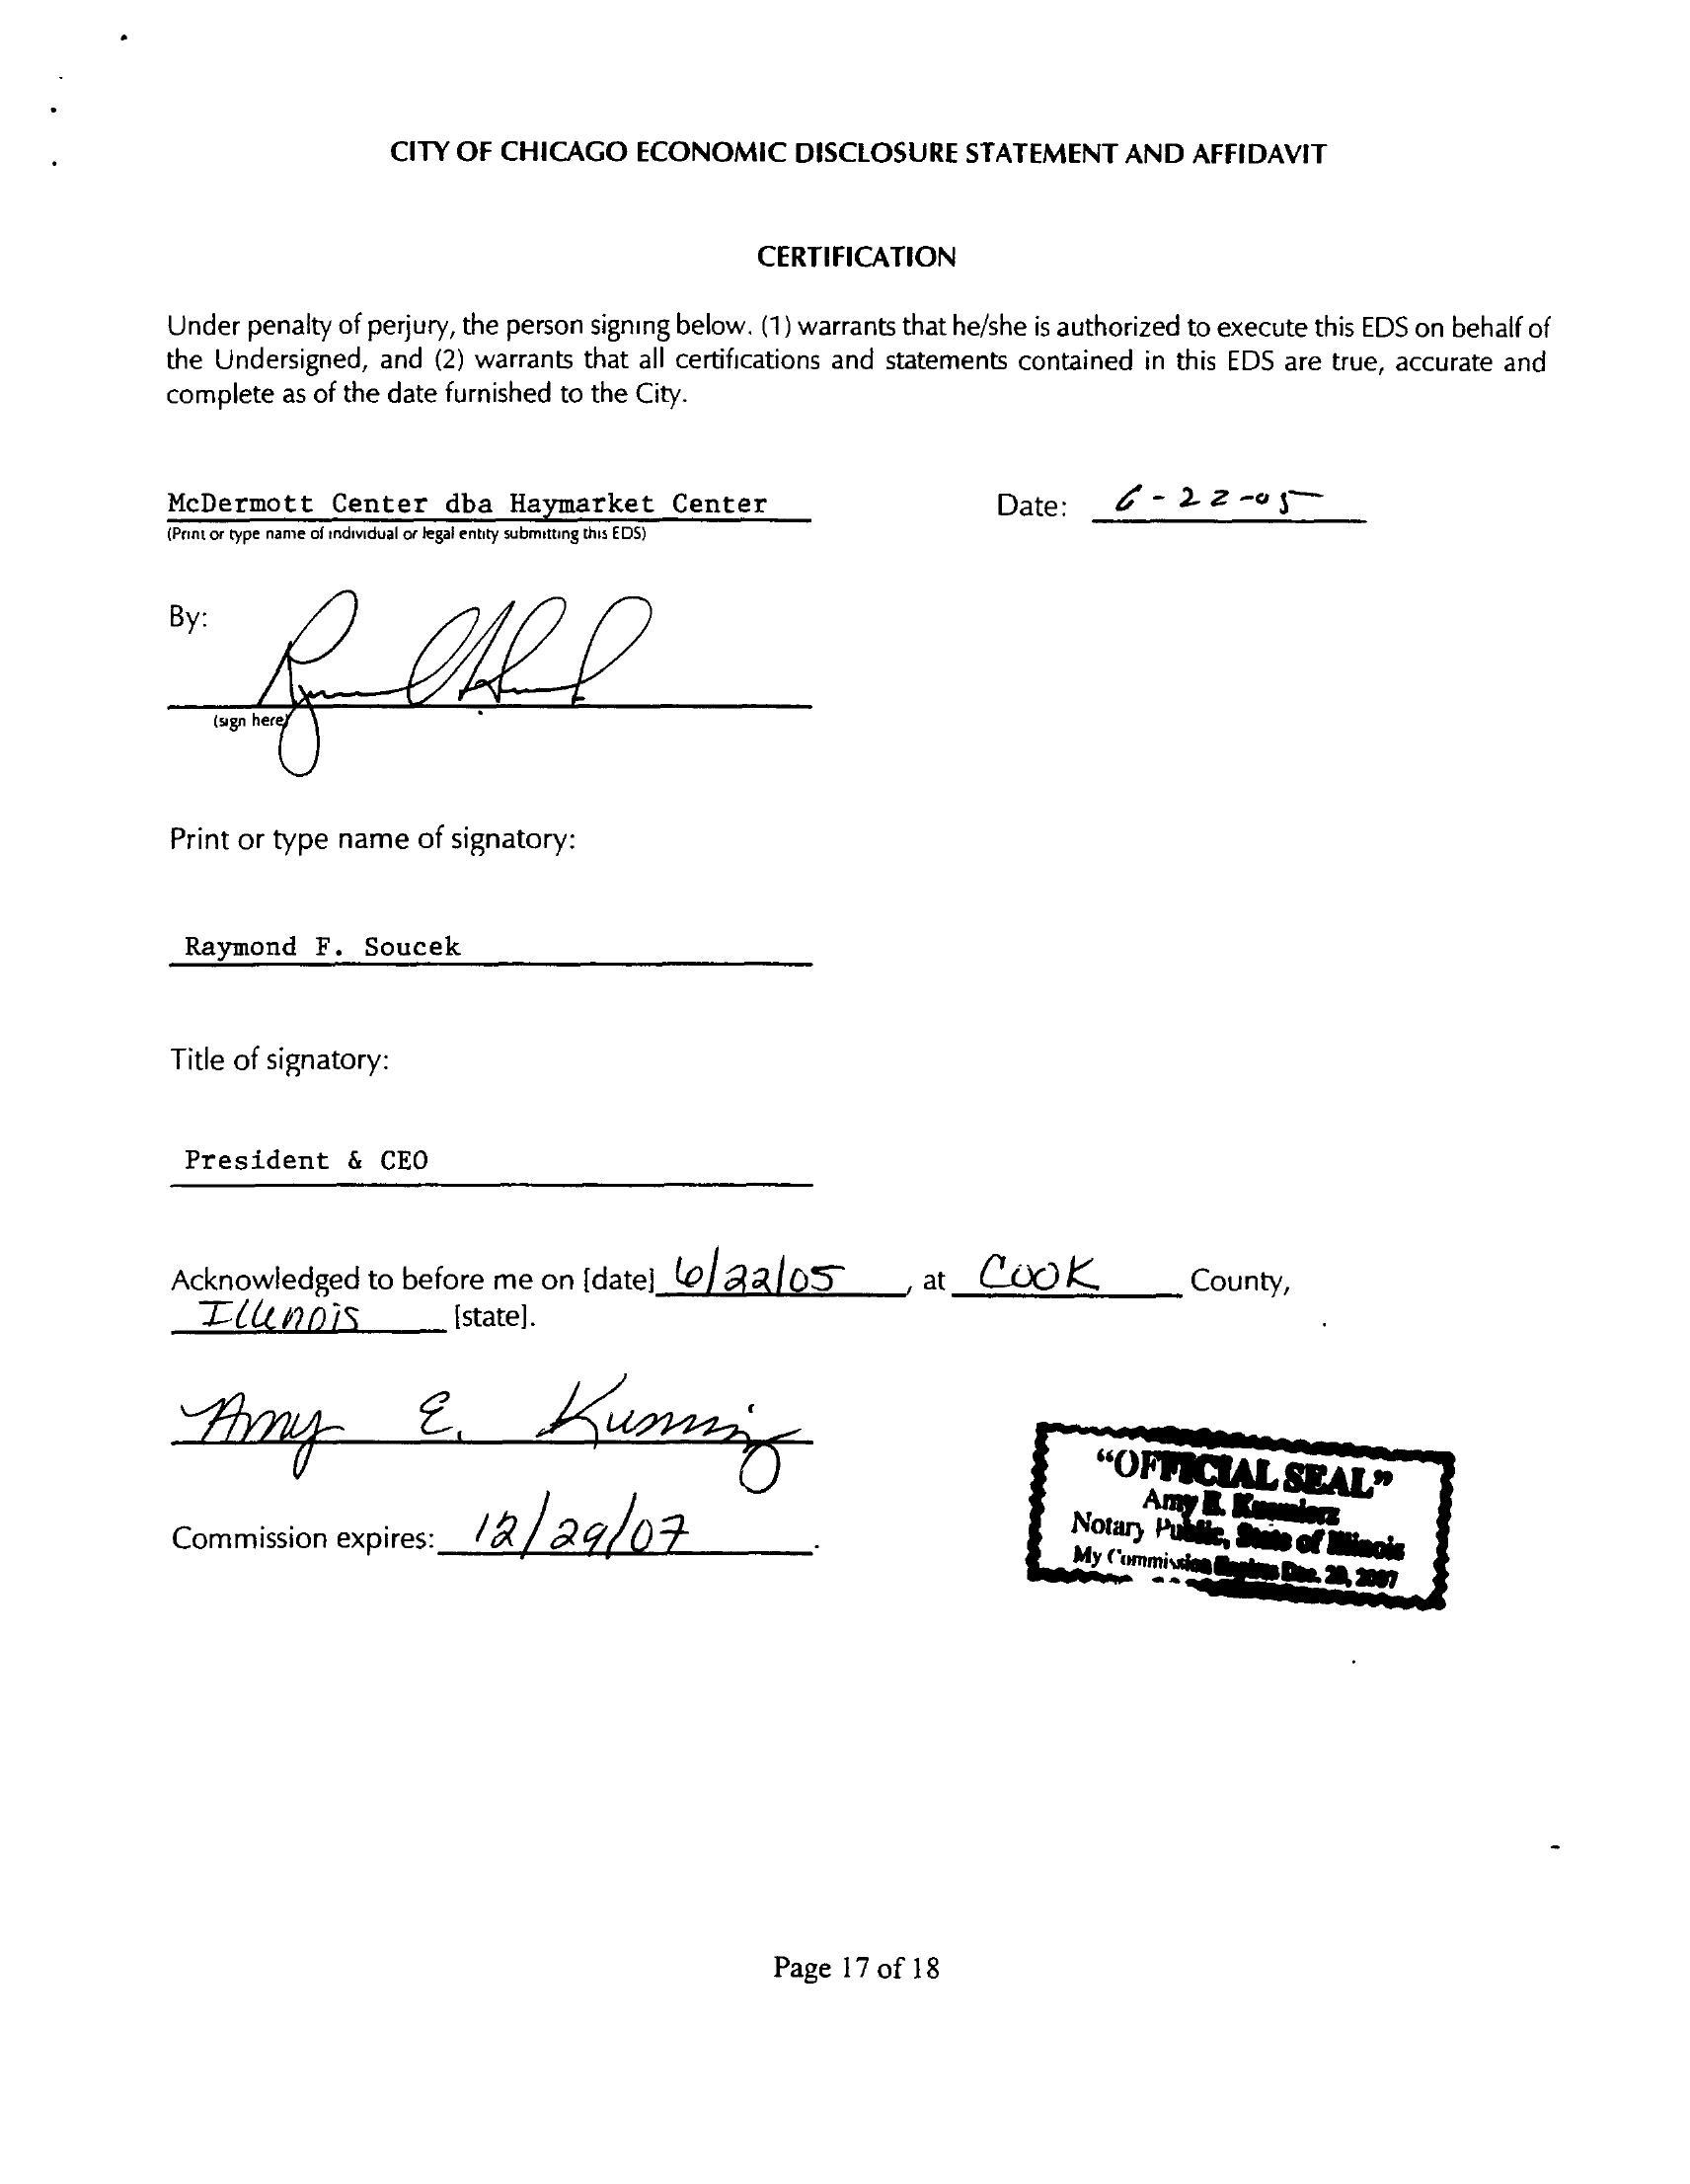 CITY OF CHICAGO ECONOMIC DISCLOSURE STATEMENT AND AFFIDAVIT
CERTIFICATION
Under penalty of perjury, the person signing below. (1) warrants that he/she is authorized to execute this EDS on behalf of
the Undersigned, and (2) warrants that all certifications and statements contained in this EDS are true, accurate and
complete as of the date furnished to the City.
McDermott Center dba Haymarket Center
Date: 6-22-05
(Print or type name of individual or legal entity submitting this EDS)
By:
(sign here)
Print or type name of signatory:
Raymond F. Soucek
Title of signatory:
President & CEO
Acknowledged to before me on [date] 6/22/05, at Cook County,
Illinois [state].
Amy E.
Commission expires: 12/29/07.
"OFFICIAL SEAL"
Amy E.
Notary Public, State of Illinois
My Commission Expires Dec. 2007
Page 17 of 18